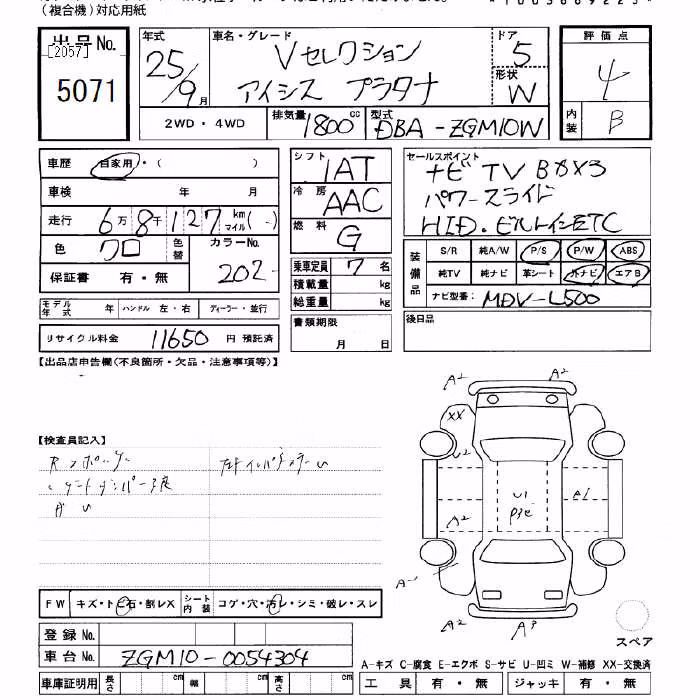 (複合機)対応用紙
出品No. [2057] 5071
年式 25/9月
車名・グレード Vセレクション
アイシス プラタナ
ドア 5
形状 W
評価点 4
内装 B
2WD・4WD 排気量 1800cc 型式 DBA-ZGM10W
車歴 自家用・( )
車検 年 月
走行 6万8千127km マイル(-)
色 クロ 色替 カラーNo. 202
保証書 有・無
モデル年式 年 ハンドル 左・右 ディーラー・並行
リサイクル料金 11650 円 預託済
シフト IAT
冷房 AAC
燃料 G
乗車定員 7名
積載量 kg
総重量 kg
書類期限
月 日
セールスポイント ナビ TV Bカメラ
パワースライド
HID.ビルトインETC
装備品 S/R 純A/W P/S P/W ABS
純TV 純ナビ 革シート 外ナビ エアB
ナビ型番: MDV-L500
後日品
【出品店申告欄(不良箇所・欠品・注意事項等)】
【検査員記入】
A2 A2
XX
U2
U1 A1
A2
A2 A3
FW キズ・トビ石・割レX シート内装 コゲ・穴・汚レ・シミ・破レ・スレ
登録No.
車台No. ZGM10-0054304
スペア
A-キズ C-腐食 E-エクボ S-サビ U-凹ミ W-補修 XX-交換済
車庫証明用 長さ cm 幅 cm 高さ cm 工具 有・無 ジャッキ 有・無